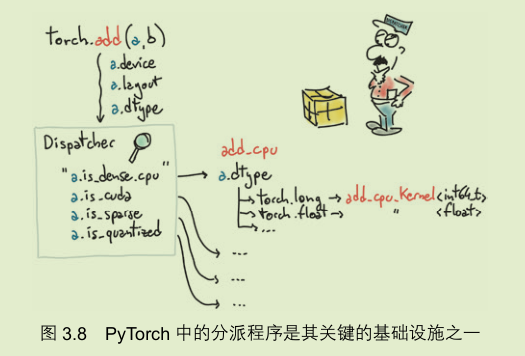 torch.add(a,b)
a.device
a.layout
a.dtype
Dispatcher
"a.is_dense.cpu"
a.is_cuda
a.is_sparse
a.is_quantized
add_cpu
a.dtype
torch.long → add_cpu_kernel<int64_t>
torch.float → " <float>
...
...
...
...
图 3.8 PyTorch 中的分派程序是其关键的基础设施之一